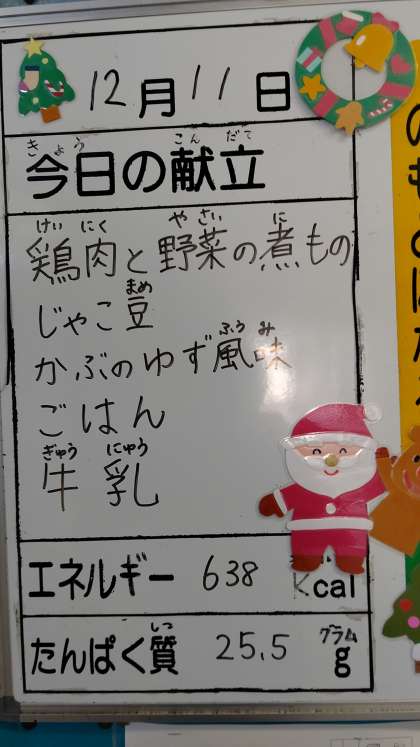 12月11日
きょう こんだて
今日の献立
けいにく やさい に
鶏肉と野菜の煮もの
まめ
じゃこ豆
ふうみ
かぶのゆず風味
ごはん
ぎゅう にゅう
牛乳
エネルギー 638 Kcal
しつ グラム
たんぱく質 25.5 g